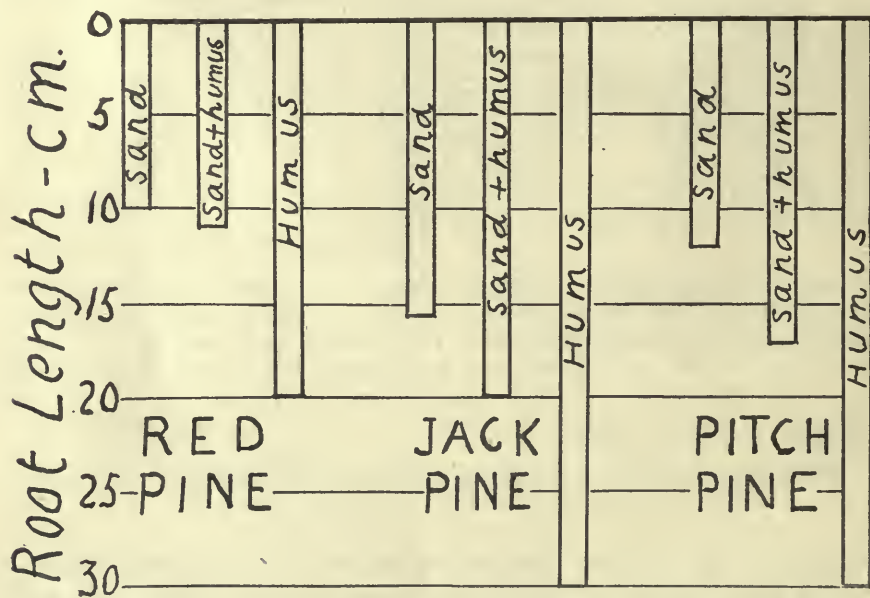 Root Length-cm.
0
5
10
15
20
25
30
sand
sand+humus
Humus
sand
sand+humus
Humus
sand
sand+humus
Humus
RED
PINE
JACK
PINE
PITCH
PINE